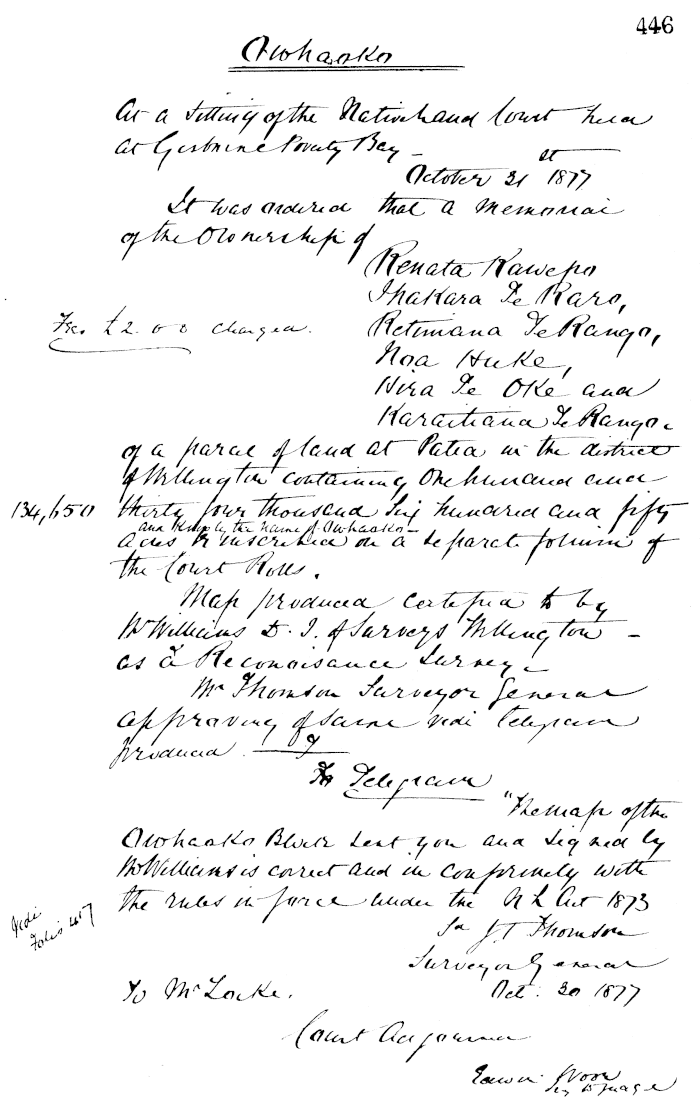 446
Owhaoko
At a sitting of the Native Land Court held
at Gisborne Poverty Bay –
October 31st 1877
It was ordered that a memorial
of the Ownership of
Renata Kawepo
Ihakara Te Raro,
Fees £2 . 0 0 charged.
Retimana Te Rango,
Noa Huke,
Hira Te Oke and
Karaitiana Te Rango.
of a parcel of land at Patea in the district
of Wellington containing One hundred and
134,650
thirty four thousand Six hundred and fifty
and known by the name of Owhaoko
acres be inscribed on a separate folium of
the Court Rolls.
Map produced certified to by
Mr Williams D. I. of Surveys Wellington –
as a Reconaisance Survey –
Mr Thomson Surveyor General
approving of same vide telegram
produced
Telegram
"The map of the
Owhaoko Block sent you and signed by
Mr Williams is correct and in conformity with
the rules in force under the N L Act 1873
Vide
Folio 457
J T Thomson
Surveyor General
To Mr Locke.
Oct. 30 1877
Court Adjourned